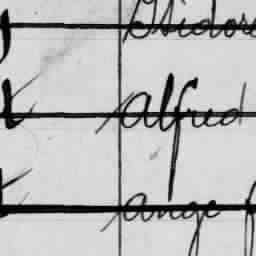 Isidore
Alfred
ange